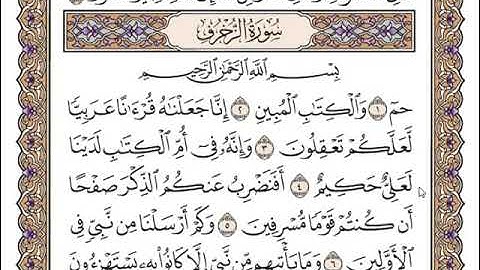 سُورَةُ الزُّخْرُفِ
بِسْمِ اللَّهِ الرَّحْمَٰنِ الرَّحِيمِ
حمٓ ١ وَالْكِتَابِ الْمُبِينِ ٢ إِنَّا جَعَلْنَاهُ قُرْءَانًا عَرَبِيًّا
لَّعَلَّكُمْ تَعْقِلُونَ ٣ وَإِنَّهُ فِىٓ أُمِّ الْكِتَابِ لَدَيْنَا
لَعَلِىٌّ حَكِيمٌ ٤ أَفَنَضْرِبُ عَنكُمُ الذِّكْرَ صَفْحًا
أَن كُنتُمْ قَوْمًا مُّسْرِفِينَ ٥ وَكَمْ أَرْسَلْنَا مِن نَّبِىٍّ فِى
الْأَوَّلِينَ ٦ وَمَا يَأْتِيهِم مِّن نَّبِىٍّ إِلَّا كَانُوا۟ بِهِۦ يَسْتَهْزِءُونَ